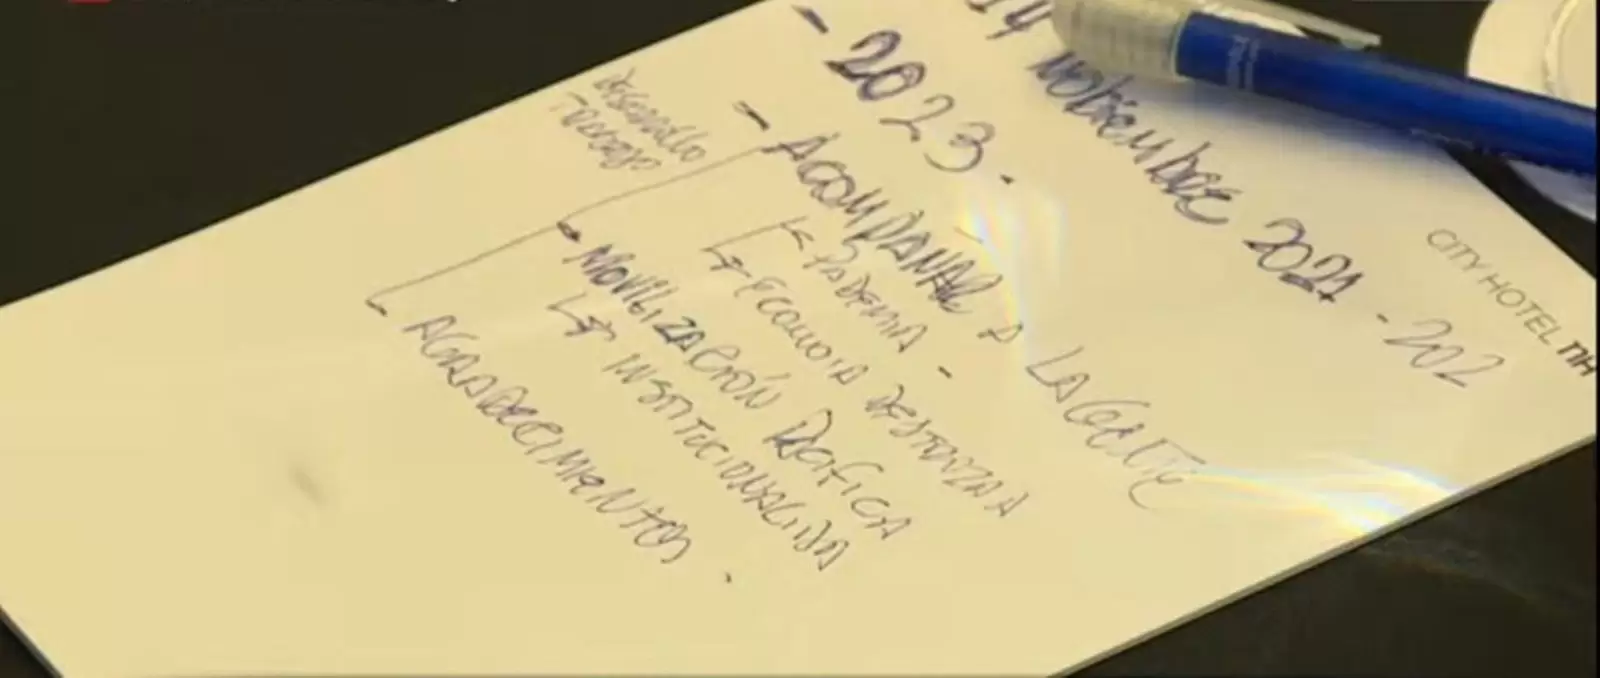 CITY HOTEL nH
14 NOVIEMBRE 2021 - 202
- 2023.
- ACOMPAÑAR A LA GENTE
PADEMIA -
ECONOIA DESTROZADA
DESARROLLO
- MOVILIZACIÓN PACIFICA
INSTITUCIONALIDAD
AGRADECIMIENTOS.